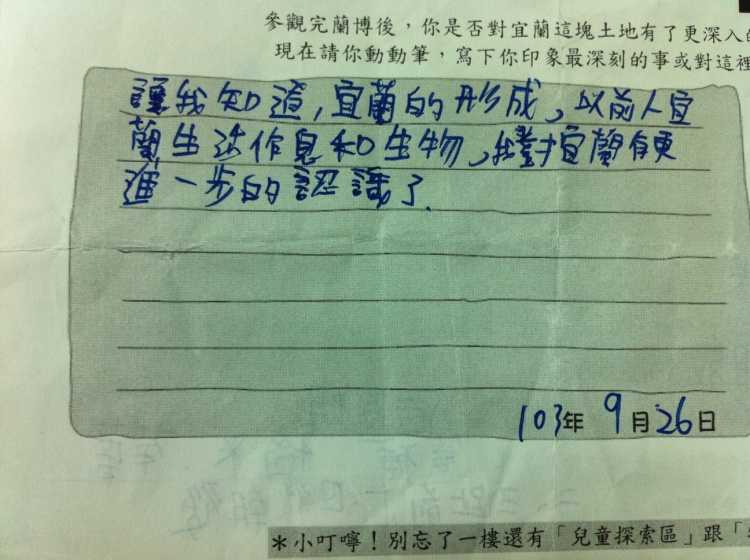 參觀完蘭博後，你是否對宜蘭這塊土地有了更深入的
現在請你動動筆，寫下你印象最深刻的事或對這裡
讓我知道，宜蘭的形成、以前人宜
蘭生活作息和生物，我對宜蘭有更
進一步的認識了.
103年 9月26日
＊小叮嚀！別忘了一樓還有「兒童探索區」跟「